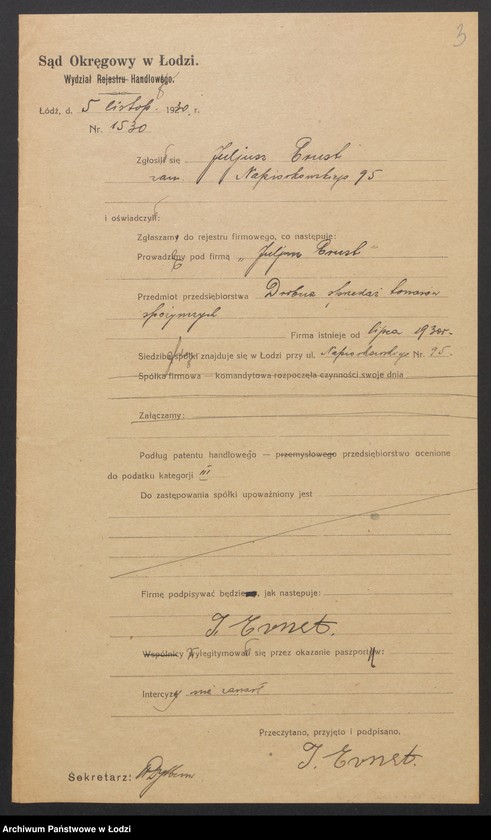 3
Sąd Okręgowy w Łodzi.
Wydział Rejestru Handlowego.
Łódź, d. 5 listop. 1930. r.
Nr. 1530
Zgłosił się Juljusz Ernst
zam. Napiórkowskiego 95
i oświadczył:
Zgłaszam do rejestru firmowego, co następuje:
Prowadzę pod firmą „Juljusz Ernst"
Przedmiot przedsiębiorstwa Drobna sprzedaż towarów
spożywczych
Firma istnieje od lipca 1930r.
Siedziba spółki znajduje się w Łodzi przy ul. Napiórkowskiego Nr. 95.
Spółka firmowa — komandytowa rozpoczęła czynności swoje dnia
Załączamy:
Podług patentu handlowego — przemysłowego przedsiębiorstwo ocenione
do podatku kategorji III
Do zastępowania spółki upoważniony jest
Firmę podpisywać będzie, jak następuje:
J. Ernst.
Wspólnicy wylegitymował się przez okazanie paszportu:
Intercyzy nie zawarł
Przeczytano, przyjęto i podpisano.
J. Ernst.
Sekretarz:
Archiwum Państwowe w Łodzi